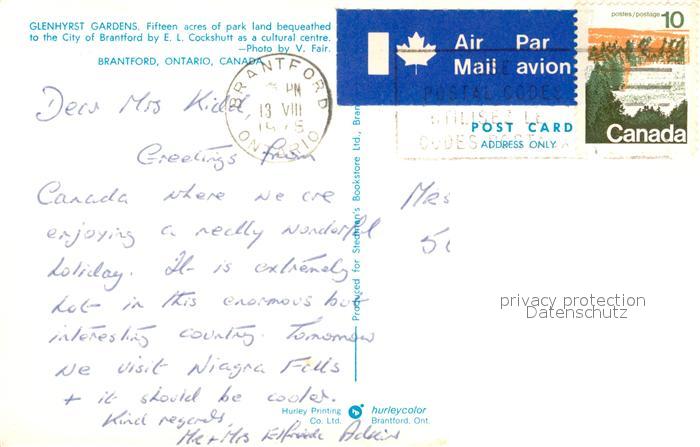 GLENHYRST GARDENS. Fifteen acres of park land bequeathed
to the City of Brantford by E. L. Cockshutt as a cultural centre.
—Photo by V. Fair.
BRANTFORD, ONTARIO, CANADA
Air Par
Mail avion
postes/postage 10
Canada
BRANTFORD
PM
13 VIII
ONTARIO
POSTAL CODES
UTILISEZ LE
CODES
POST CARD
ADDRESS ONLY
Dear Mrs Kidd,
Greetings from
Canada where we are
enjoying a really wonderful
holiday. It is extremely
hot in this enormous but
interesting country. Tomorrow
we visit Niagra Falls
+ it should be cooler.
Kind regards,
Mr + Mrs
Mrs
Produced for Stedman's Bookstore Ltd., Bran
privacy protection
Datenschutz
Hurley Printing
Co. Ltd.
hurleycolor
Brantford, Ont.